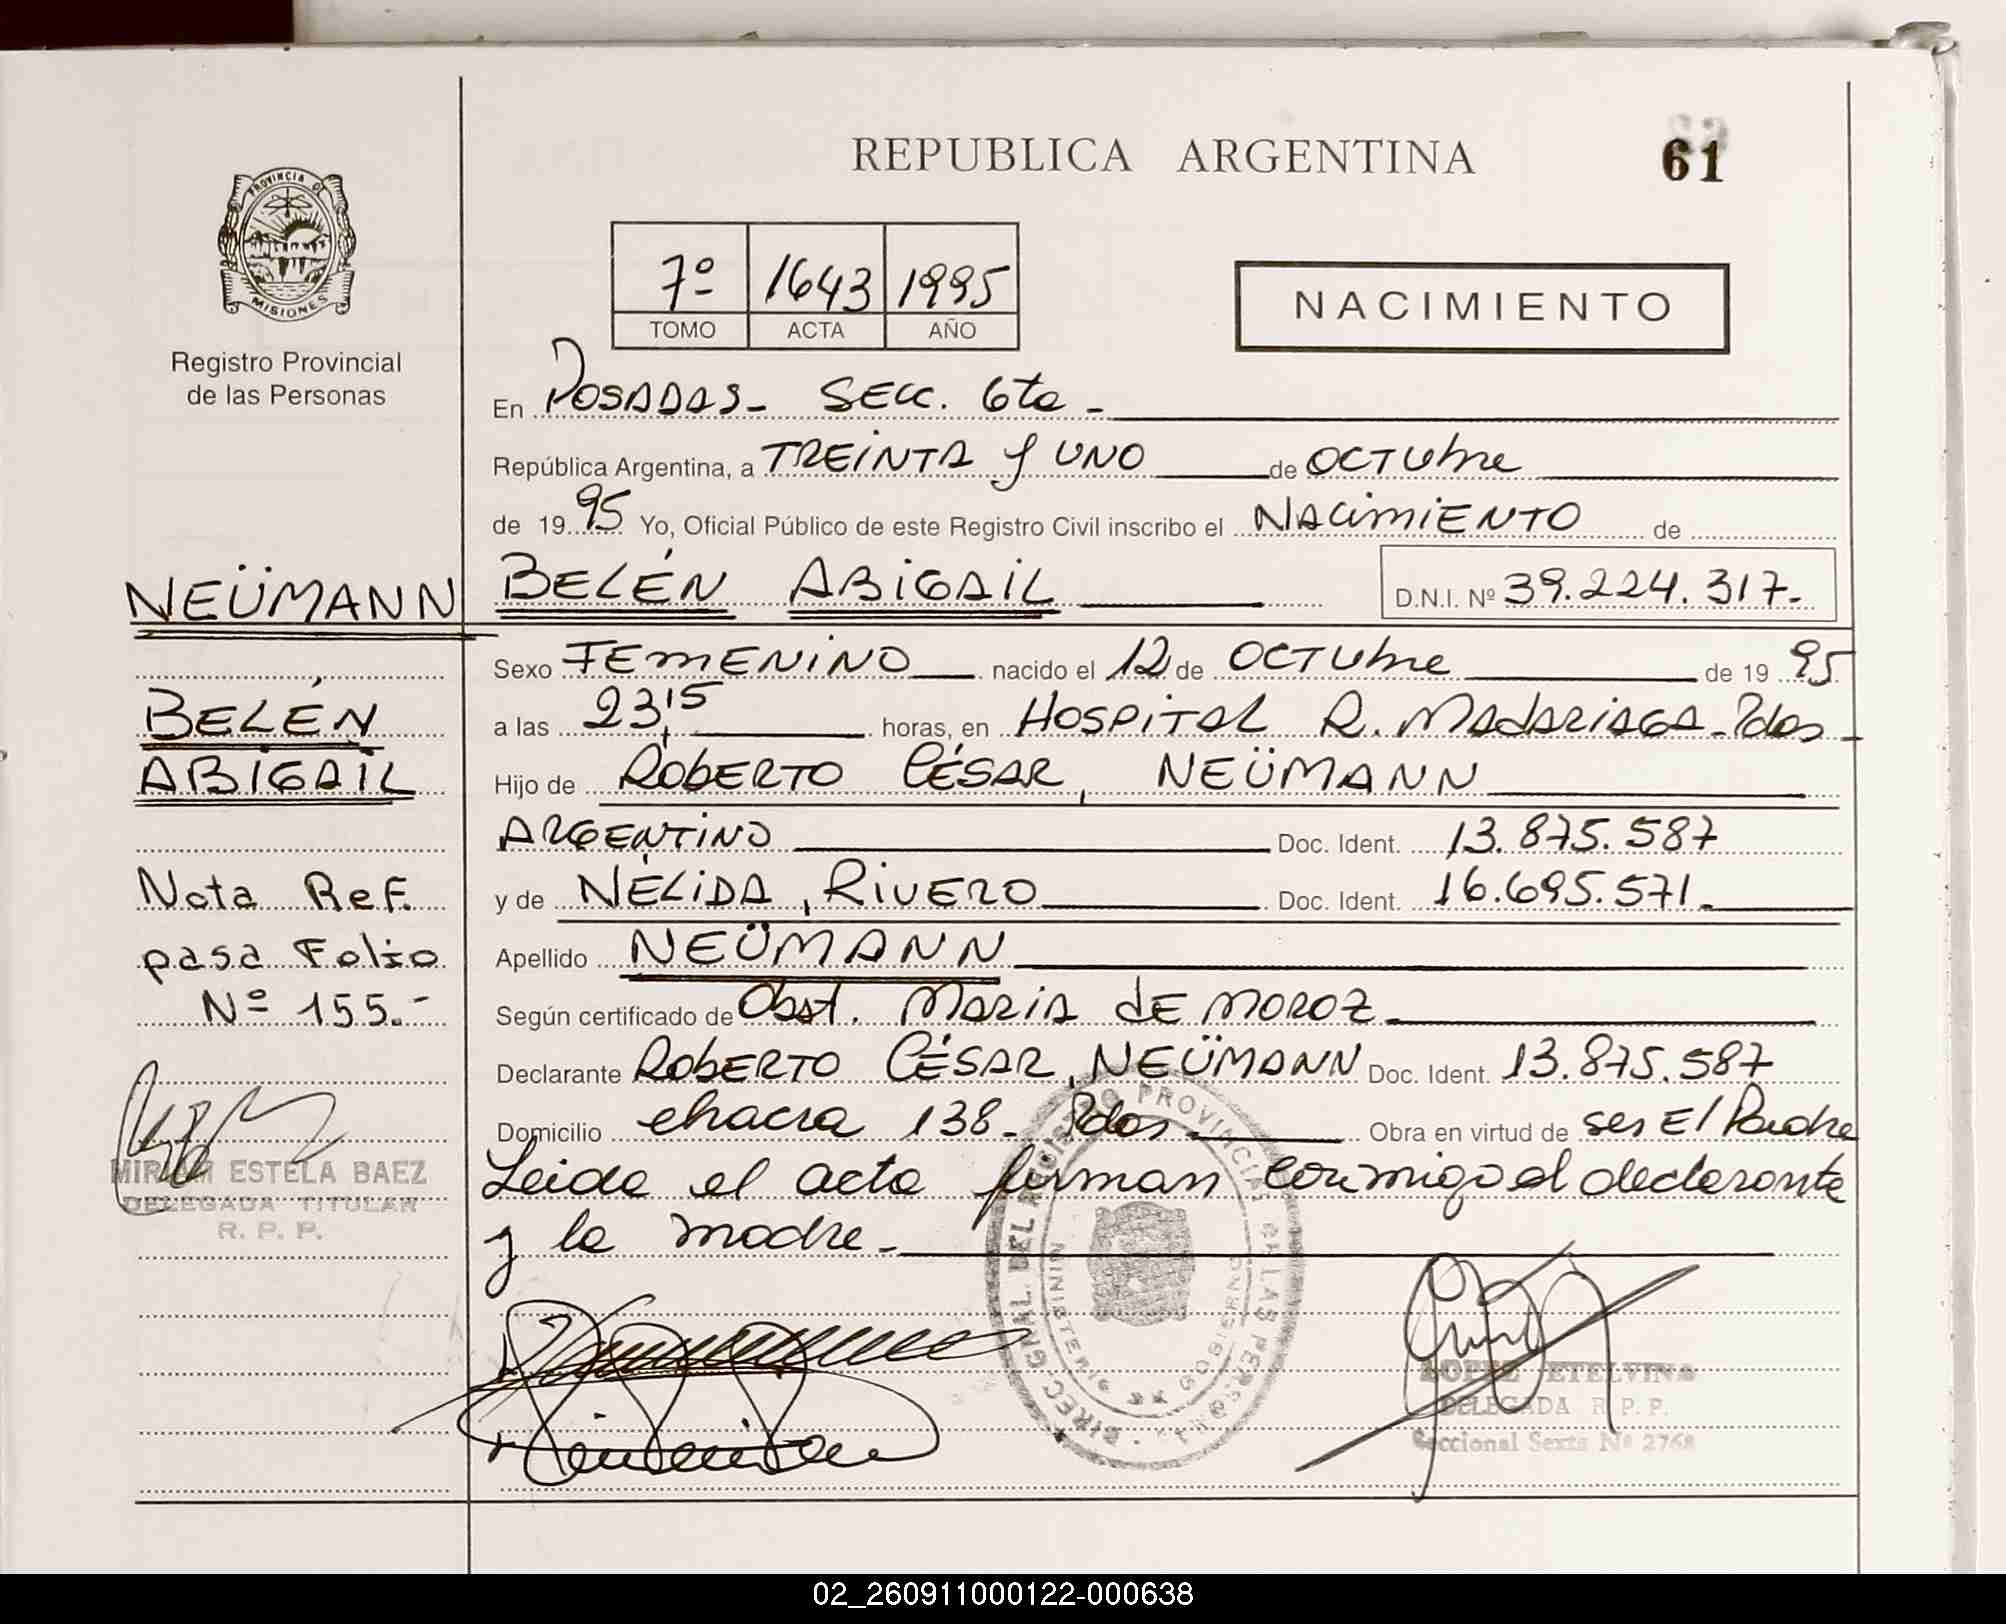 REPUBLICA ARGENTINA
61
PROVINCIA DE
MISIONES
Registro Provincial
de las Personas
7º 1643 1995
TOMO ACTA AÑO
NACIMIENTO
En POSADAS - SECC. 6ta -
República Argentina, a TREINTA y UNO de OCTUbre
de 1995 Yo, Oficial Público de este Registro Civil inscribo el NACIMIENTO de
BELÉN ABIGAIL D.N.I. Nº 39.224.317.-
Sexo FEMENINO nacido el 12 de OCTUbre de 1995
a las 23,15 horas, en HOSPITAL R. MADARIAGA - Pdas -
Hijo de ROBERTO CÉSAR, NEÜMANN
ARGENTINO Doc. Ident. 13.875.587
y de NÉLIDA, RIVERO Doc. Ident. 16.695.571.-
Apellido NEÜMANN
Según certificado de Obst. MARIA dE MOROZ
Declarante ROBERTO CÉSAR, NEÜMANN Doc. Ident. 13.875.587
Domicilio chacra 138 - Pdas - Obra en virtud de ser El Padre
Leida el acta firman conmigo el declarante
y la madre -
NEÜMANN
BELÉN
ABIGAIL
Nota Ref.
pasa Folio
Nº 155.-
MIRIAM ESTELA BAEZ
DELEGADA TITULAR
R. P. P.
LOPEZ ETELVINA
DELEGADA R. P. P.
Seccional Sexta Nº 2768
02_260911000122-000638